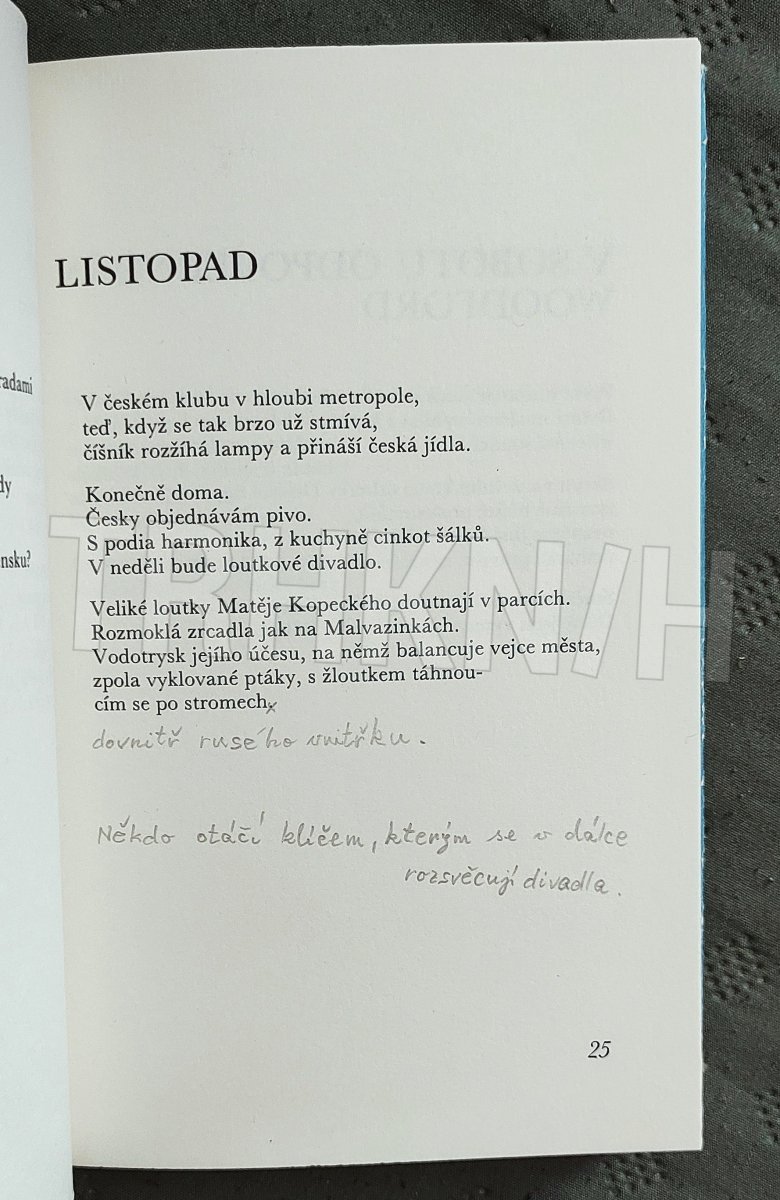 radami
dy
nsku?
LISTOPAD
V českém klubu v hloubi metropole,
teď, když se tak brzo už stmívá,
číšník rozžíhá lampy a přináší česká jídla.
Konečně doma.
Česky objednávám pivo.
S podia harmonika, z kuchyně cinkot šálků.
V neděli bude loutkové divadlo.
Veliké loutky Matěje Kopeckého doutnají v parcích.
Rozmoklá zrcadla jak na Malvazinkách.
Vodotrysk jejího účesu, na němž balancuje vejce města,
zpola vyklované ptáky, s žloutkem táhnou-
cím se po stromech
dovnitř rusého vnitřku.
Někdo otáčí klíčem, kterým se v dálce
rozsvěcují divadla.
25
TRHKNIH